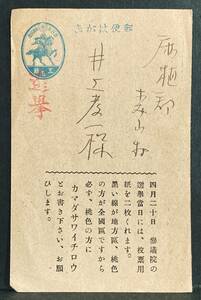 郵便はがき
選擧
麻植郡
井上孝一様
四月二十日 參議院の
選擧當日には、投票用
紙を二枚くれます。
黒い線が地方區、桃色
の方が全國區ですから
必ず、桃色の方に
カマダサワイチロウ
とお書き下さい、お願
ひします。